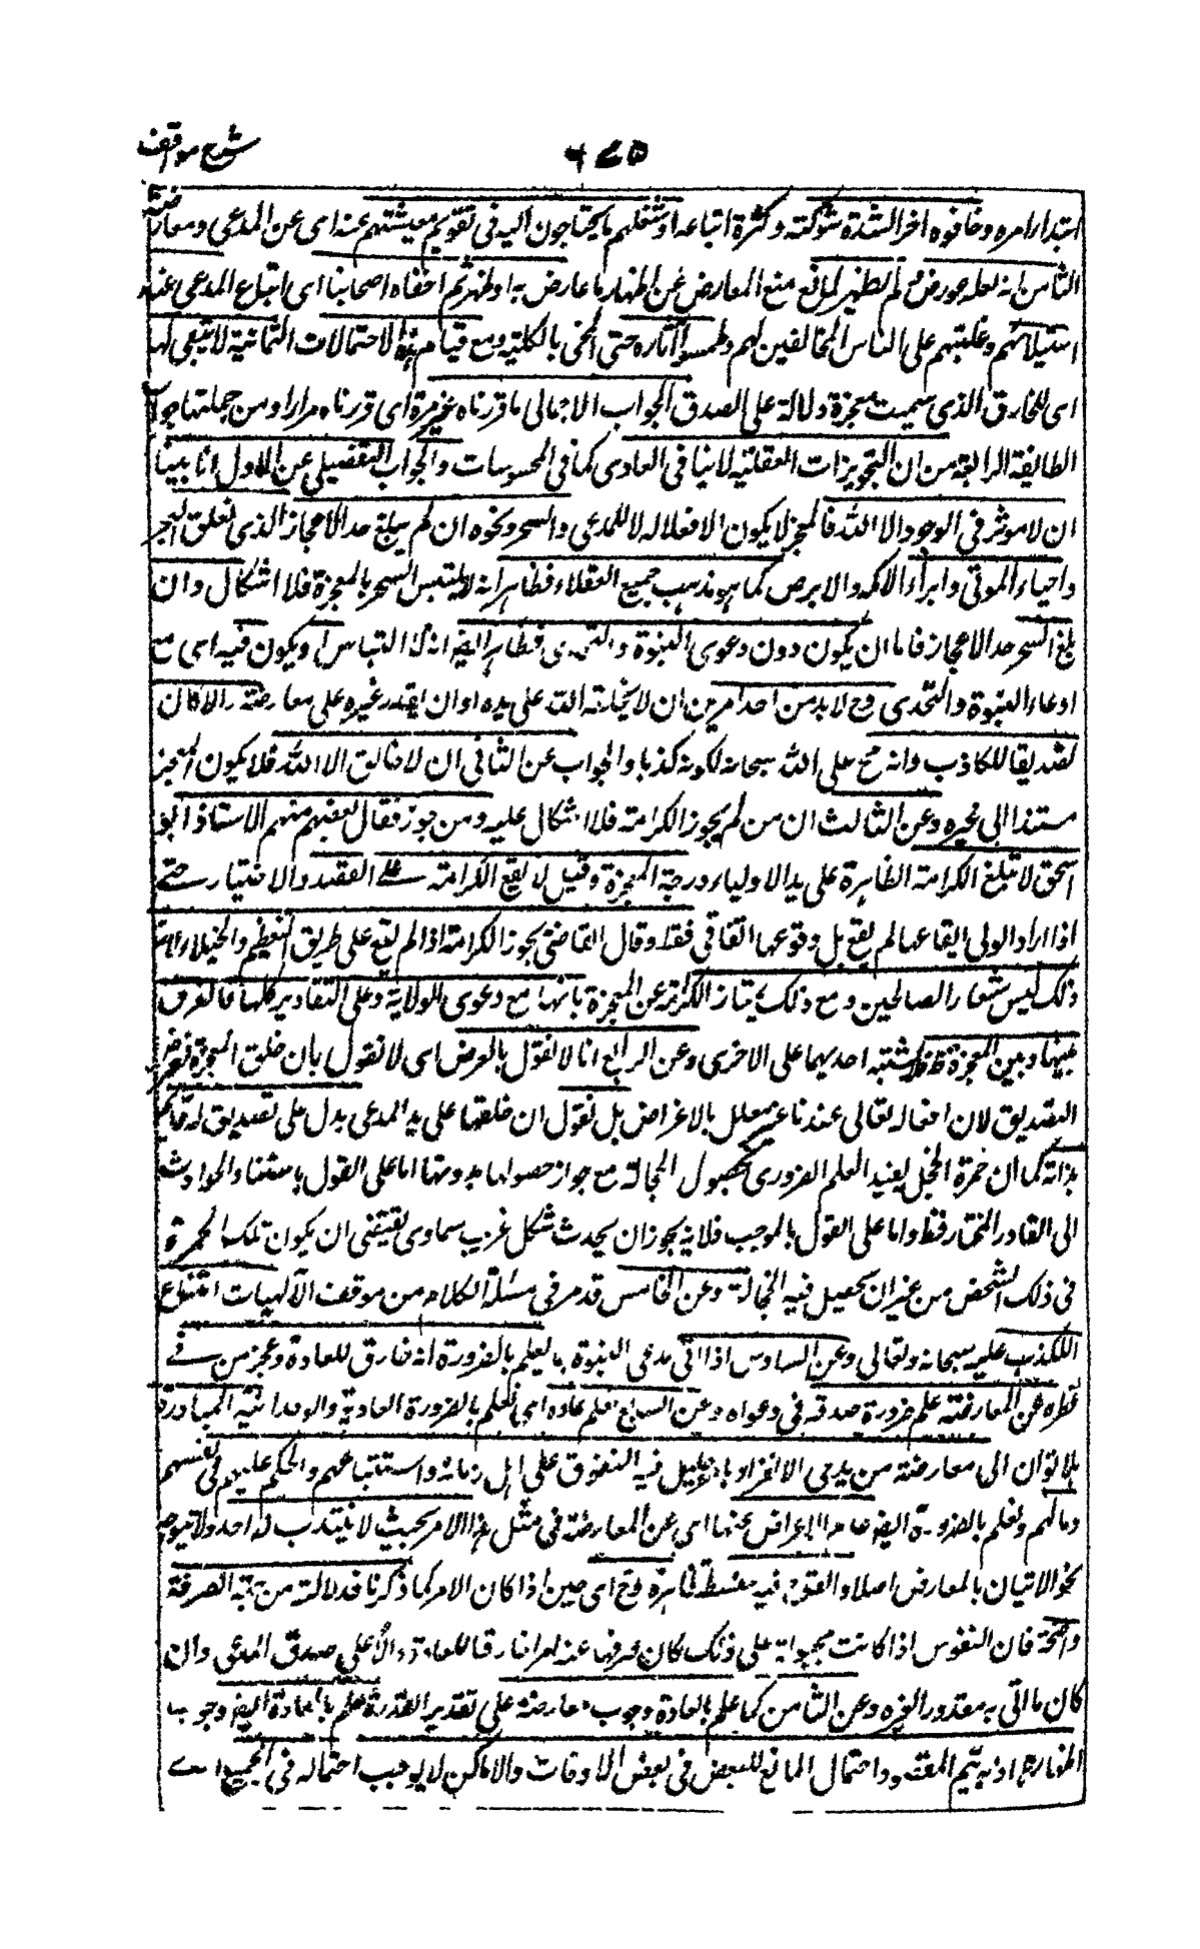 شرح مواقف
٦٧٥
ابتداء امره وخافوه اخر الشدة شوكته وكثرة اتباعه او شغلهم ما يحتاجون اليه في تقويم معيشتهم عنه اى عن المدعى ومعارضته
الثامن انه لعله عورض ولم يظهر لمانع منع المعارض عن اظهار ما عارض به او ظهر ثم اخفاه اصحابنا اى اتباع المدعى عند
استيلائهم وغلبتهم على الناس المخالفين لهم وطمسوا آثاره حتى انمحى بالكلية ومع قيام هذه الاحتمالات الثمانية لا تبقى لها
اى للخارق الذى سميت معجزة دلالة على الصدق الجواب الاجمالى ما قررناه غير مرة اى قررناه مرارا ومن جملتها جواب
الطايفة الرابعة من ان التجويزات العقلية لا ينافى العادى كما فى المحسوسات والجواب التفصيلى عن الاول انا بينا
ان لا موثر فى الوجود الا الله فالمعجز لا يكون الا فعلا له لا للمدعى والسحر ونحوه ان لم يبلغ حد الاعجاز الذى كفلق البحر
واحياء الموتى وابراء الاكمه والابرص كما هو مذهب جميع العقلاء فظاهر انه لا يلتبس السحر بالمعجزة فلا اشكال وان
بلغ السحر حد الاعجاز فاما ان يكون دون دعوى النبوة والتحدى فظاهر ايضا انه لا التباس او يكون فيه اى مع
ادعاء النبوة والتحدى وح لا بد من احد امرين ان لا يخلقه الله على يده او ان يقدر غيره على معارضته والا كان
تصديقا للكاذب وانه مح على الله سبحانه لكونه كذبا والجواب عن الثانى ان لا خالق الا الله فلا يكون المعجز
مستندا الى غيره وعن الثالث ان من لم يجوز الكرامة فلا اشكال عليه ومن جوز فقال بعضهم منهم الاستاذ ابو
اسحق لا تبلغ الكرامة الظاهرة على يد الاولياء درجة المعجزة وقيل لا يقع الكرامة على القصد والاختيار حتى
اذا اراد الولى ايقاعها لم يقع بل وقوعها اتفاقى فقط وقال القاضى يجوز الكرامة اذا لم يقع على طريق التعظيم والخيلاء لان
ذلك ليس شعار الصالحين ومع ذلك يمتاز الكرامة عن المعجزة بانها مع دعوى الولاية وعلى التقادير كلها فالفرق
بينها وبين المعجزة ظ فلا يشتبه احديهما على الاخرى وعن الرابع انا لا نقول بالغرض اى لا نقول بان خلق المعجزة لغرض
التصديق لان افعاله تعالى عندنا غير معلل بالاغراض بل نقول ان خلقها على يد المدعى يدل على تصديق له قائم
بذاته كما ان حمرة الخجل يفيد العلم الضرورى بحصول الخجالة مع جواز حصولها بدونها اما على القول باستناد الحوادث
الى القادر المختار فظ واما على القول بالموجب فلانه يجوز ان يحدث شكل غريب سماوى يقتضى ان يكون تلك الحمرة
فى ذلك الشخص من غير ان يحصل فيه الخجالة وعن الخامس قد مر فى مسئلة الكلام من موقف الآلهيات امتناع
الكذب عليه سبحانه وتعالى وعن السادس اذا اتى مدعى النبوة بما يعلم بالضرورة انه خارق للعادة وعجز من فى
قطره عن المعارضة علم ضرورة صدقه فى دعواه وعن السابع يعلم عادة اى نعلم بالضرورة العادية والوجدانية المبادرة
بلا توان الى معارضة من يدعى الانفراد بامر جليل فيه التفوق على اهل زمانه واستتباعهم والحكم عليهم فى انفسهم
ومالهم ونعلم بالضرورة ايضا عدم الاعراض عنها اى عن المعارضة فى مثل هذا الامر بحيث لا ينتدب له احد ولا يتوجه
نحو الاتيان بالمعارض اصلا والقدح فيه سفسطة ظاهرة وح اى حين اذ كان الامر كما ذكرنا فدلالته من جهة الصرفة
واضحة فان النفوس اذا كانت مجبولة على ذلك كان صرفها عنه امرا خارقا للعادة دالا على صدق المدعى وان
كان ما اتى به مقدورا لغيره وعن الثامن كما علم بالعادة وجوب معارضته على تقدير القدرة علم بالعادة ايضا وجوب
اظهارها اذ به يتم المقصود واحتمال المانع للبعض فى بعض الاوقات والاماكن لا يوجب احتماله فى الجميع اى